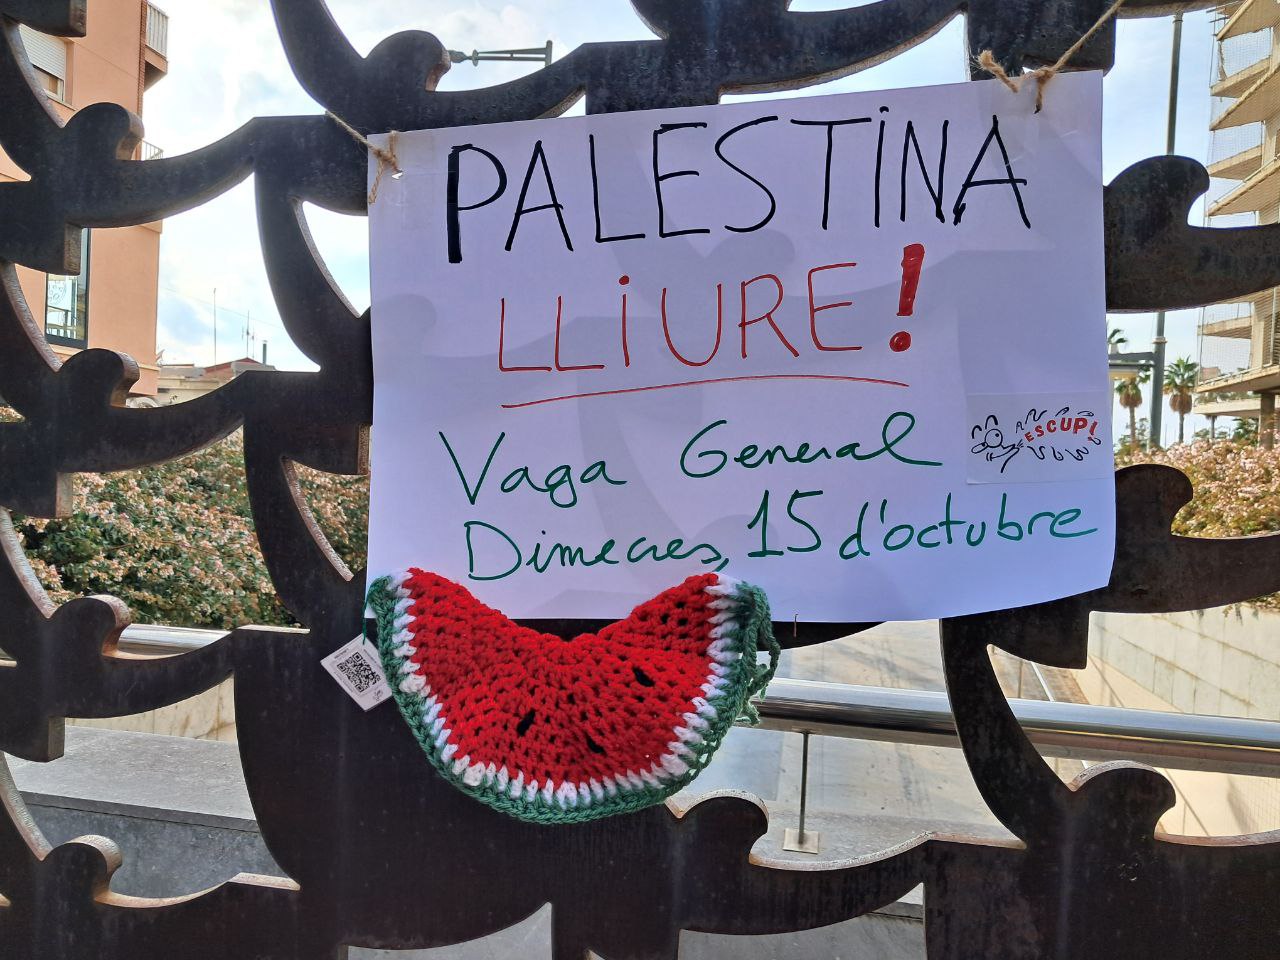 PALESTINA
LLIURE!
Vaga General
ESCUPI
Dimecres, 15 d'octubre